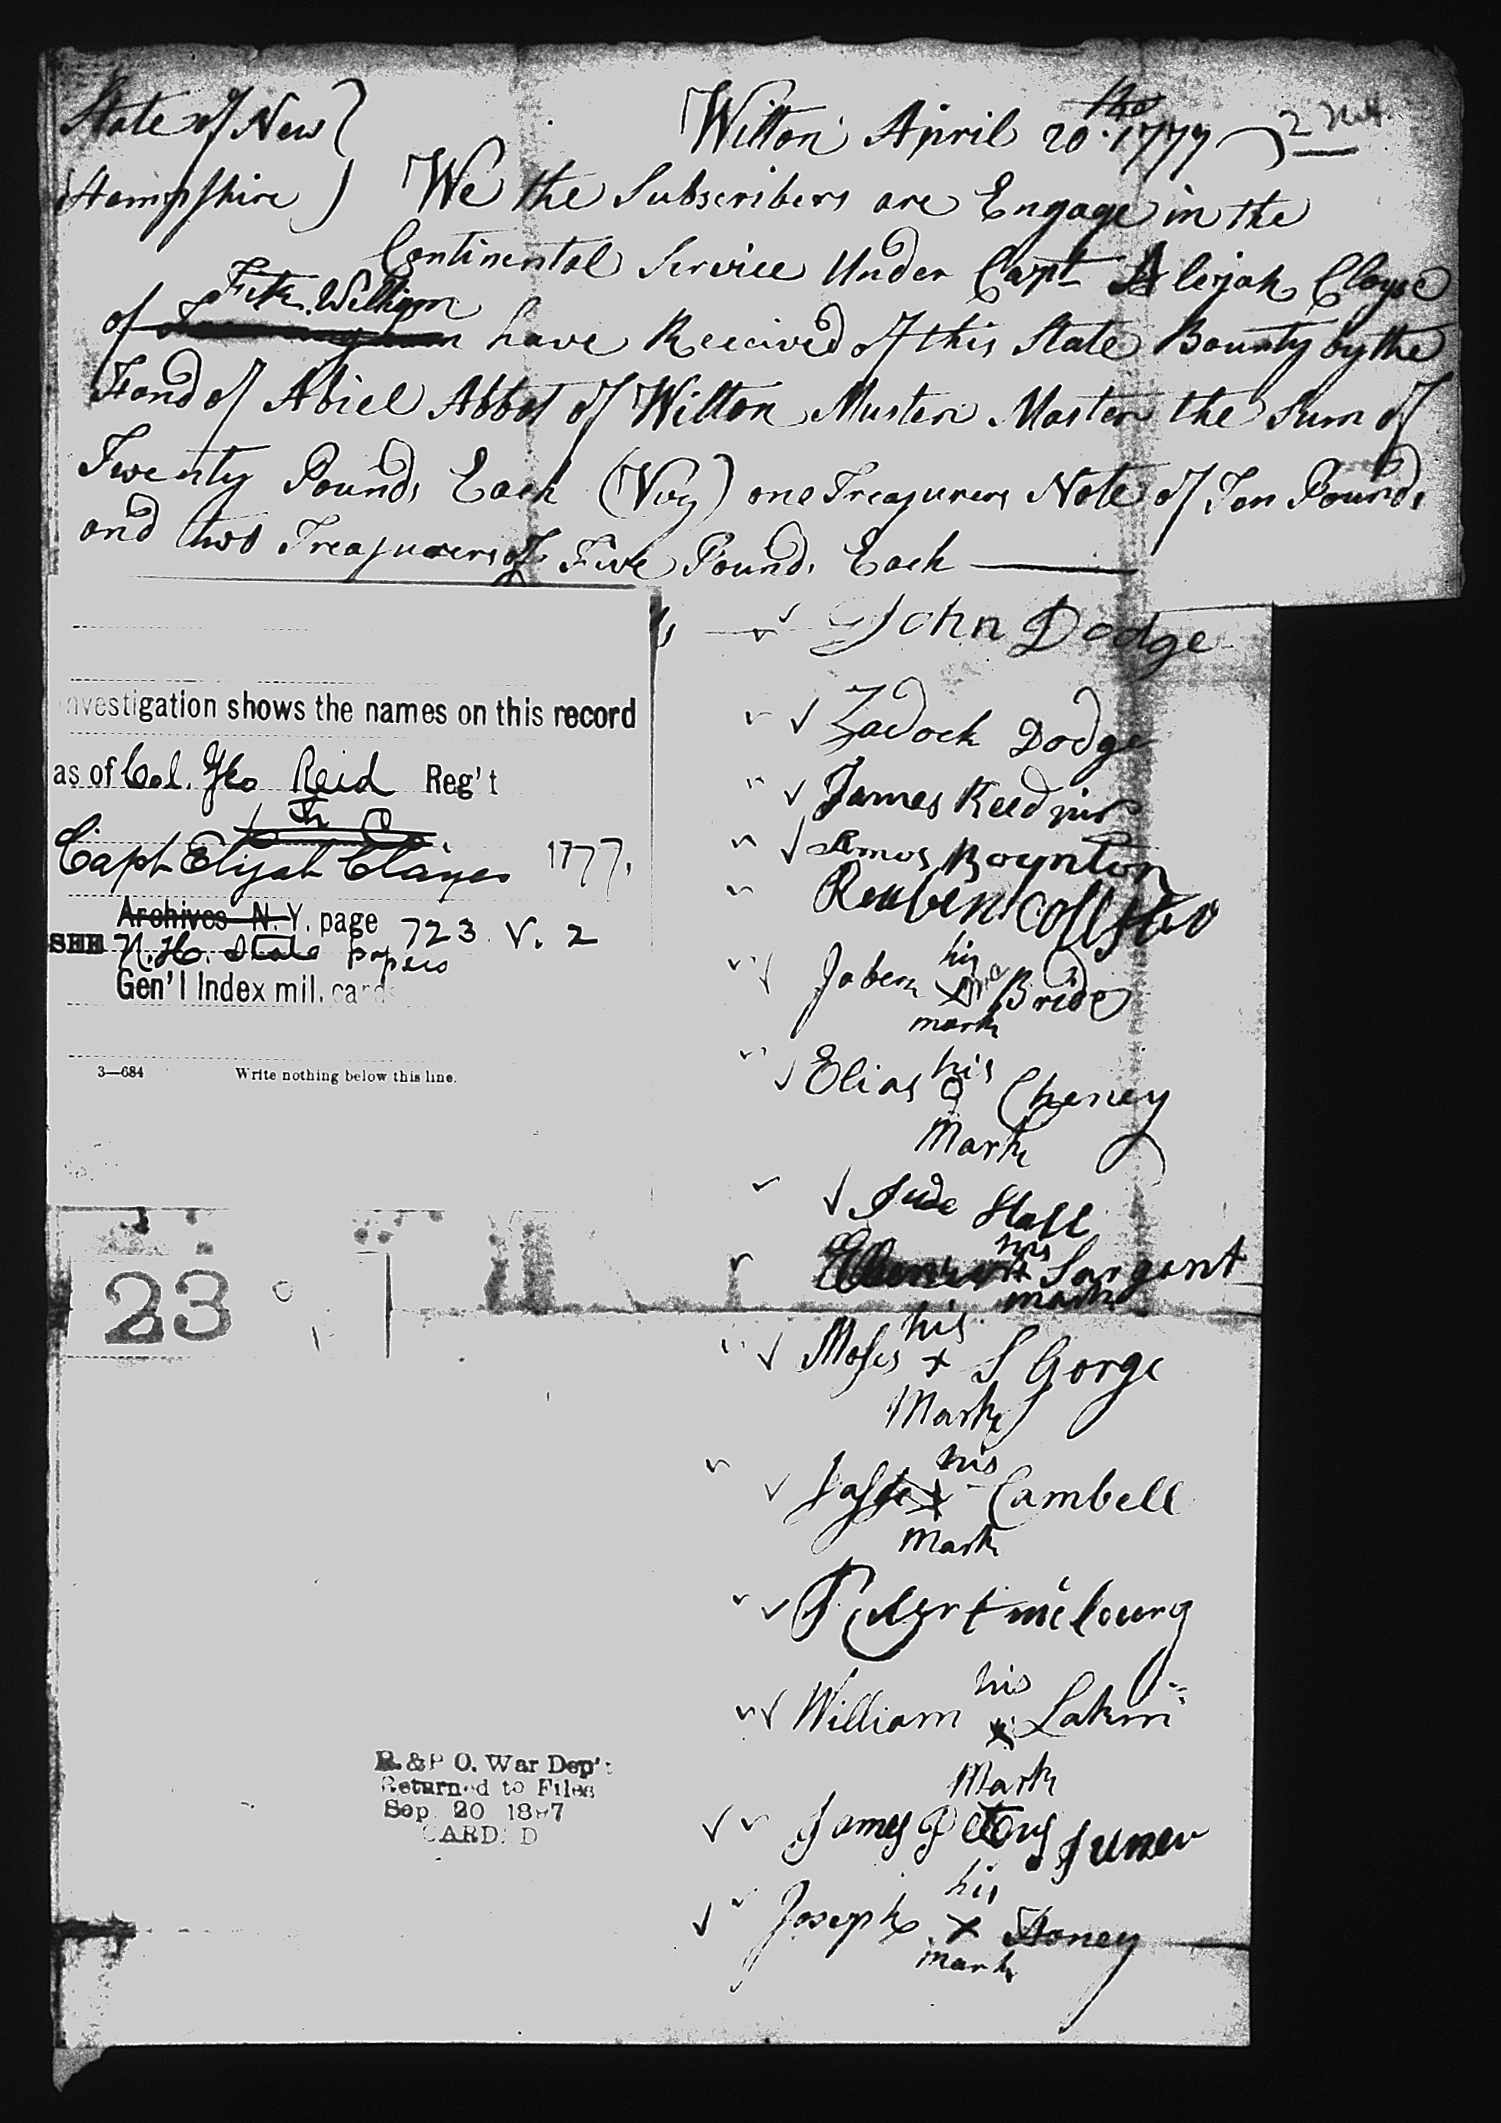 State of New } Wilton April 20the 1777 2 N.H.
Hampshire ) We the Subscribers are Engage in the
Continental Service Under Capt Elijah Cloyse
Fitz William
of have Received of this State Bounty by the
Hand of Abiel Abbot of Wilton Muster Master the Sum of
Twenty Pounds Each (Viz) one Treasurers Note of Ten Pounds
and two Treasurers of Five Pounds Each
John Dodge
Zadock Dodge
James Reed jur
Amos Boynton
Reuben
his
Jaben x Mc Bride
mark
his
Elias O Cheney
Mark
Jude Hall
his
Ebenezer x Sargent
mark
his
Moses x S Gorge
Mark
his
x Cambell
Mark
his
William x Lakin
Mark
James Peters Juner
his
Joseph x Honey
mark
investigation shows the names on this record
as of Col. Geo Reid Reg't
Capt Elijah Clayes 1777.
Archives N.Y. page 723 V. 2
SEE N.H. State papers
Gen'l Index mil. cards
3—684 Write nothing below this line.
23
R. & P. O. War Dep't
Returned to Files
Sep. 20 1897
CARDED